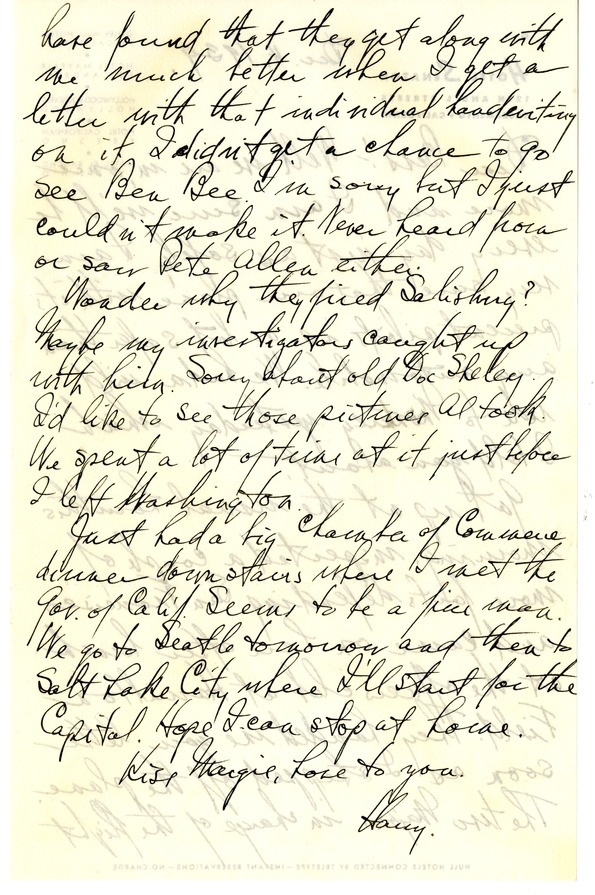 have found that they get along with
me much better when I get a
letter with that individual handwriting
on it. I didn't get a chance to go
see Ben Bee. I'm sorry but I just
couldn't make it. Never heard from
or saw Pete Allen either.
Wonder why they fired Salisbury?
Maybe my investigators caught up
with him. Sorry about old Doc Sheley.
I'd like to see those pictures Al took.
We spent a lot of time at it just before
I left Washington.
Just had a big Chamber of Commerce
dinner downstairs where I met the
Gov. of Calif. Seems to be a fine man.
We go to Seatle tomorrow and then to
Salt Lake City where I'll start for the
Capitol. Hope I can stop at home.
Kiss Margie, love to you.
Harry.
HULL HOTELS CONNECTED BY TELETYPE—INSTANT RESERVATIONS—NO CHARGE